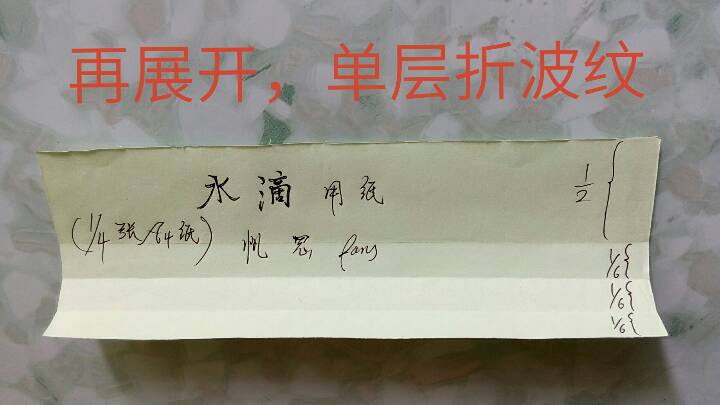 再展开，单层折波纹
水滴 用纸
(1/4张A4纸)
帆 fans
1/2
1/6
1/6
1/6